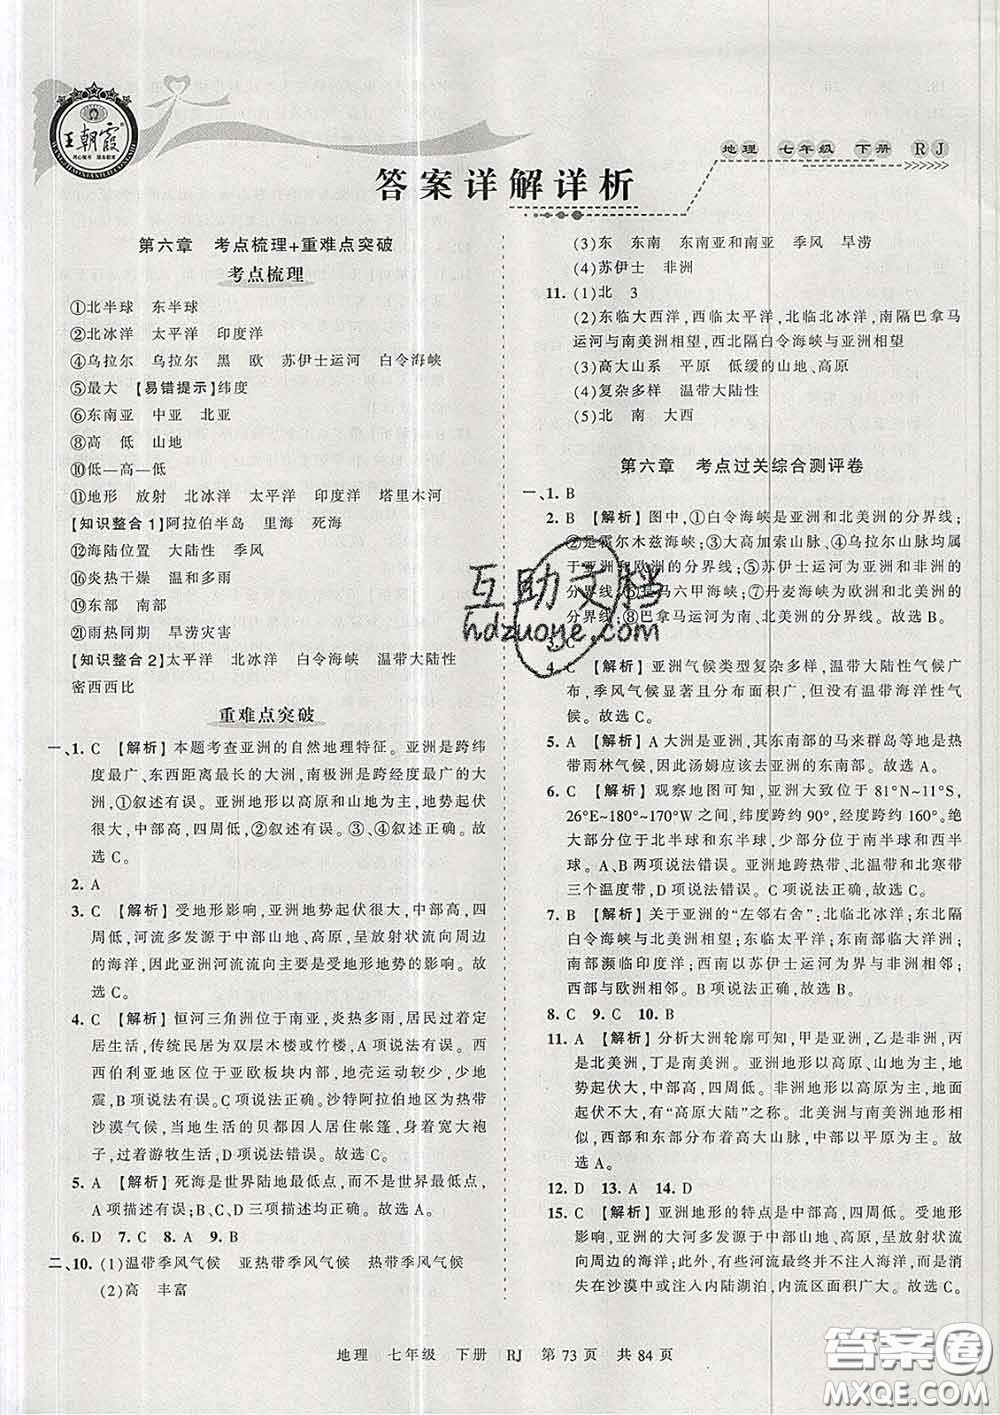 王朝霞
地理 七年级 下册 RJ
答案详解详析
第六章 考点梳理+重难点突破
考点梳理
①北半球 东半球
②北冰洋 太平洋 印度洋
④乌拉尔 乌拉尔 黑 欧 苏伊士运河 白令海峡
⑤最大 【易错提示】纬度
⑥东南亚 中亚 北亚
⑧高 低 山地
⑩低—高—低
⑪地形 放射 北冰洋 太平洋 印度洋 塔里木河
【知识整合1】阿拉伯半岛 里海 死海
⑫海陆位置 大陆性 季风
⑯炎热干燥 温和多雨
⑲东部 南部
㉑雨热同期 旱涝灾害
【知识整合2】太平洋 北冰洋 白令海峡 温带大陆性
密西西比
重难点突破
一、1. C 【解析】本题考查亚洲的自然地理特征。亚洲是跨纬
度最广、东西距离最长的大洲,南极洲是跨经度最广的大
洲,①叙述有误。亚洲地形以高原和山地为主,地势起伏
很大,中部高,四周低,②叙述有误。③、④叙述正确。故
选 C。
2. A
3. C 【解析】受地形影响,亚洲地势起伏很大,中部高,四
周低,河流多发源于中部山地、高原,呈放射状流向周边
的海洋,因此亚洲河流流向主要是受地形地势的影响。故
选 C。
4. C 【解析】恒河三角洲位于南亚,炎热多雨,居民过着
定居生活,传统民居为双层木楼或竹楼,A 项说法有误。西
西伯利亚地区位于亚欧板块内部,地壳运动较少,少地
震,B 项说法有误。C 项说法正确。沙特阿拉伯为热带
沙漠气候,当地生活的贝都因人居住帐篷,身着宽大袍
子,过着游牧生活,D 项说法有误。故选 C。
5. A 【解析】死海是世界陆地最低点,而不是世界最低点,
A 项描述有误;B、C、D 三项描述均正确。故选 A。
6. D 7. C 8. A 9. B
二、10. (1)温带季风气候 亚热带季风气候 热带季风气候
(2)高 丰富
(3)东 东南 东南亚和南亚 季风 旱涝
(4)苏伊士 非洲
11. (1)北 3
(2)东临大西洋,西临太平洋,北临北冰洋,南隔巴拿马
运河与南美洲相望,西北隔白令海峡与亚洲相望
(3)高大山系 平原 低缓的山地、高原
(4)复杂多样 温带大陆性
(5)北 南 大西
第六章 考点过关综合测评卷
一、1. B
2. B 【解析】图中,①白令海峡是亚洲和北美洲的分界线;
②是霍尔木兹海峡;③大高加索山脉、④乌拉尔山脉均属
于亚洲和欧洲的分界线;⑤苏伊士运河为亚洲和非洲的
分界线;⑥是马六甲海峡;⑦丹麦海峡为欧洲和北美洲的
分界线;⑧巴拿马运河为南、北美洲的分界线。故选 B。
3. C
4. C 【解析】亚洲气候类型复杂多样,温带大陆性气候广
布,季风气候显著且分布面积广,但没有温带海洋性气
候。故选 C。
5. A 【解析】A 大洲是亚洲,其东南部的马来群岛等地是热
带雨林气候,因此汤姆应该去亚洲的东南部。故选 A。
6. C 【解析】观察地图可知,亚洲大致位于 81°N~11°S,
26°E~180°~170°W 之间,纬度跨约 90°,经度跨约 160°。绝
大部分位于北半球和东半球,少部分位于南半球和西半
球。A、B 两项说法错误。亚洲地跨热带、北温带和北寒带
三个温度带,D 项说法错误。C 项说法正确,故选 C。
7. B 【解析】关于亚洲的“左邻右舍”:北临北冰洋;东北隔
白令海峡与北美洲相望;东临太平洋;东南部临大洋洲;
南部濒临印度洋;西南以苏伊士运河与非洲相邻;
西部与欧洲相邻。B 项说法正确。故选 B。
8. C 9. C 10. B
11. A 【解析】分析大洲轮廓可知,甲是亚洲,乙是非洲,丙
是北美洲,丁是南美洲。亚洲地形以高原、山地为主,地
势起伏大,中部高,四周低。非洲地形以高原为主,地面
起伏不大,有“高原大陆”之称。北美洲与南美洲地形相
似,西部和东部分布着高大山脉,中部以平原为主。故
选 A。
12. D 13. A 14. D
15. C 【解析】亚洲地形的特点是中部高,四周低。受地形
影响,亚洲的大河多发源于中部高原、山地,呈放射状流
向周边的海洋;此外,有些河流最终流向不是海洋,而是消
失在沙漠中或注入内陆湖泊,内流区面积广大。故选 C。
互助文档
hdzuoye.com
地理 七年级 下册 RJ 第 73 页 共 84 页
答案卷
MXQE.COM